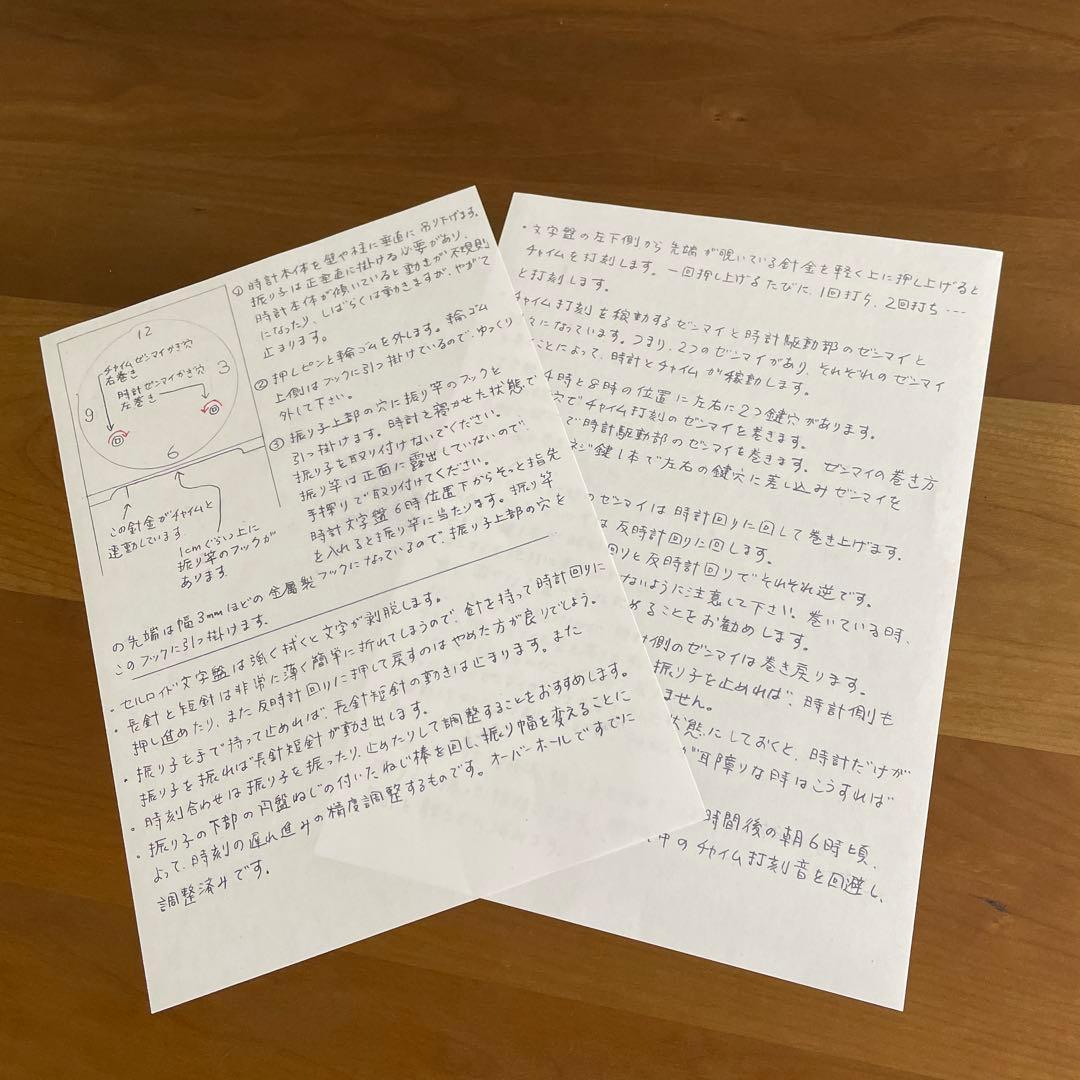 ① 時計本体を壁や柱に垂直に吊り下げます。
振り子は正垂直に掛ける必要があり、
時計本体が傾いていると動きが不規則
になったり、しばらくは動きますが、やがて
止まります。
② 押しピンと輪ゴムを外します。輪ゴム
上側はフックに引っ掛けているので、ゆっくり
外して下さい。
③ 振り子上部の穴に振り竿のフックを
引っ掛けます。時計を寝かせた状態で
振り子を取り付けないでください。
振り竿は正面に露出していないので、
手探りで取り付けてください。
時計文字盤6時位置下からそっと指先
を入れると振り竿に当たります。振り竿
の先端は幅3mmほどの金属製フックになっているので、振り子上部の穴を
このフックに引っ掛けます。
12
3
6
9
チャイムゼンマイかぎ穴
右巻き
時計ゼンマイかぎ穴
左巻き
この針金がチャイムと
連動しています
1cmぐらい上に
振り竿のフックが
あります
・セルロイド文字盤は強く拭くと文字が剥脱します。
・長針と短針は非常に薄く簡単に折れてしまうので、針を持って時計回りに
押し進めたり、また反時計回りに押して戻すのはやめた方が良りでしょう。
・振り子を手で持って止めれば、長針短針の動きは止まります。また
振り子を振れば長針短針が動き出します。
・時刻合わせは振り子を振ったり、止めたりして調整することをおすすめします。
・振り子の下部の円盤ねじの付いたねじ棒を回し、振り幅を変えることに
よって、時刻の遅れ進みの精度調整するものです。オーバーホールですでに
調整済みです。
・文字盤の左下側から先端が覗いている針金を軽く上に押し上げると
チャイムを打刻します。一回押し上げるたびに、1回打ち、2回打ち…
と打刻します。
チャイム打刻を稼動するゼンマイと時計駆動部のゼンマイと
々になっています。つまり、2つのゼンマイがあり、それぞれのゼンマイ
ことによって、時計とチャイムが稼動します。
4時と8時の位置に左右に2つ鍵穴があります。
穴でチャイム打刻のゼンマイを巻きます。
で時計駆動部のゼンマイを巻きます。ゼンマイの巻き方
ネジ鍵1本で左右の鍵穴に差し込みゼンマイを
のゼンマイは時計回りに回して巻き上げます。
は反時計回りに回します。
回りと反時計回りでそれぞれ逆です。
ないように注意して下さい。巻いている時、
めることをお勧めします。
側のゼンマイは巻き戻ります。
振り子を止めれば、時計側も
ません。
状態にしておくと、時計だけが
が耳障りな時はこうすれば
時間後の朝6時頃、
中のチャイム打刻音を回避し、